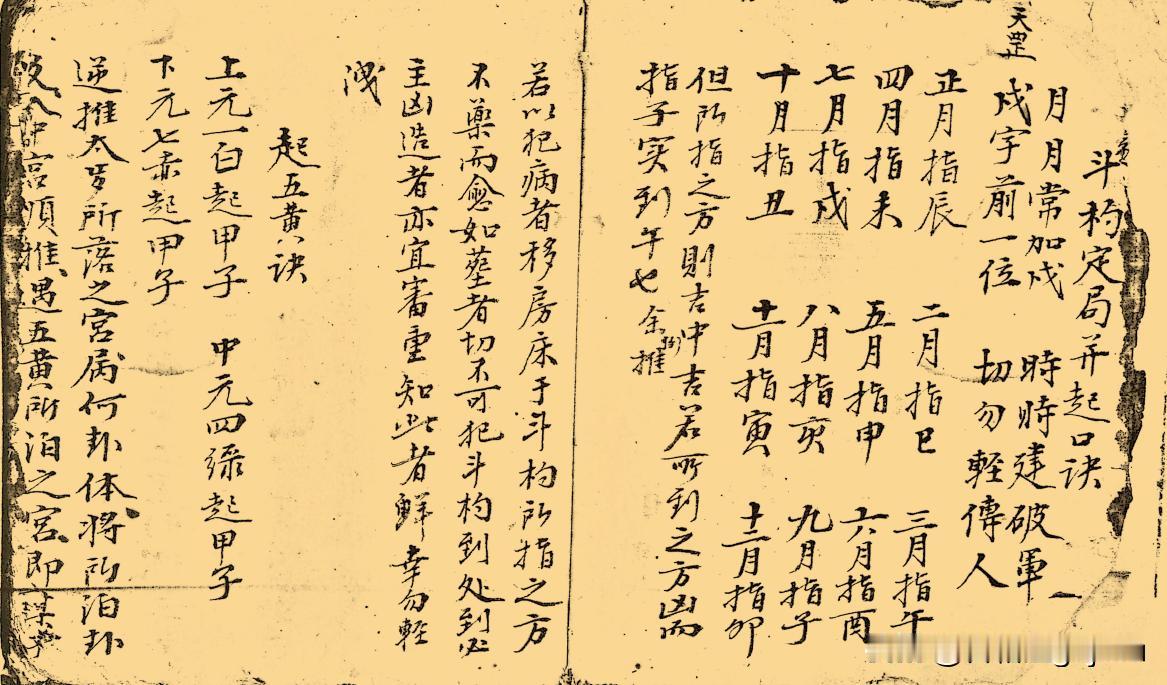 斗杓定局并起口诀
月月常加戍　時時建破軍
天罡
戍字前一位　切勿輕傳人
正月指辰　二月指巳　三月指午
四月指未　五月指申　六月指酉
七月指戍　八月指亥　九月指子
十月指丑　十一月指寅　十二月指卯
但所指之方則吉冲吉若所到之方凶而
指子实到午也　余推
若以犯病者移房床于斗杓所指之方
不藥而愈如葬者切不可犯斗杓到处到必
主凶造者亦宜審重知此者鮮幸勿輕
洩
起五黄訣
上元一白起甲子　中元四緑起甲子
下元七赤起甲子
逆推太岁所落之宮屬何卦体將所泊卦
入中宮順推遇五黄所泊之宮即